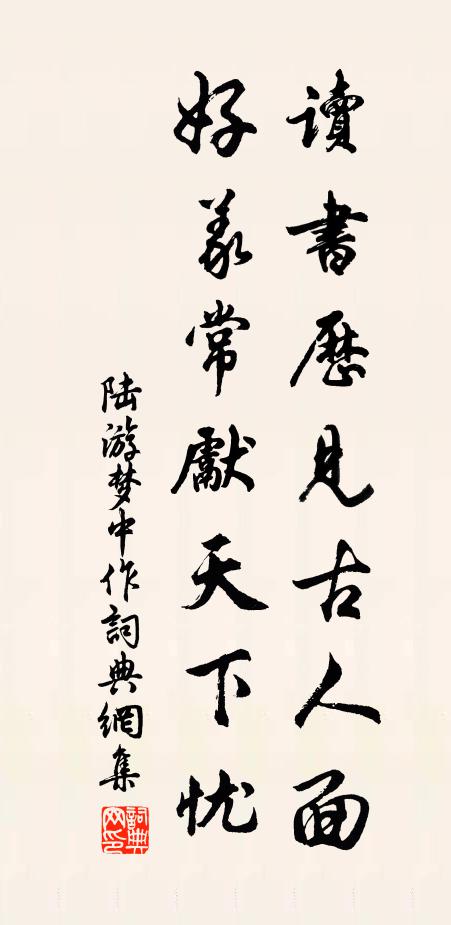 讀書歷見古人面
好義常獻天下忧
陆游梦中作詞典網集
詞典网印